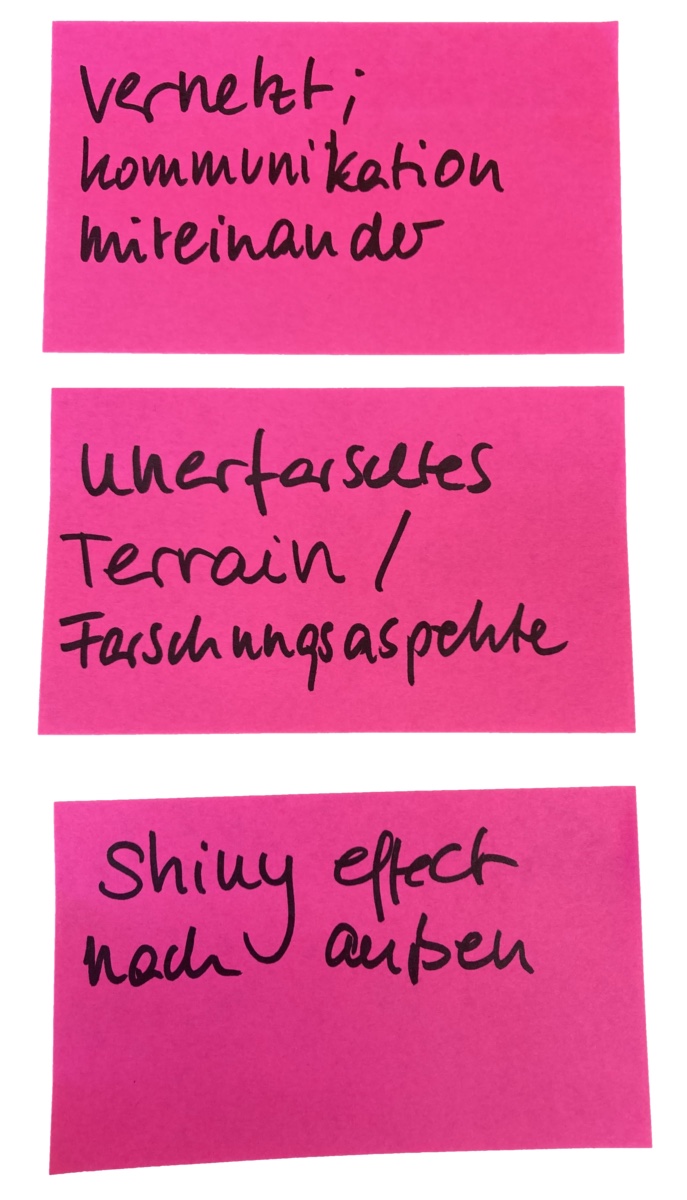 vernetzt;
kommunikation
miteinander
unerforschtes
Terrain /
Forschungsaspekte
Shiny effect
nach außen